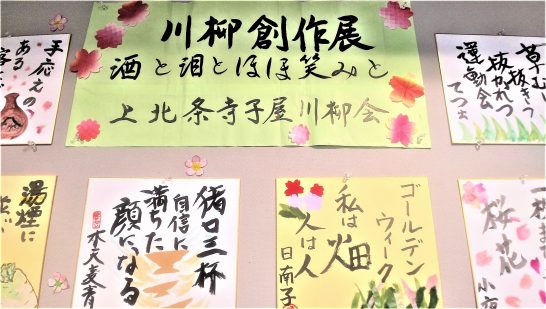 川柳創作展
酒と泪とほほ笑みと
上北条寺子屋川柳会
手応えの
ある
草むし
抜きつ
抜かれつ
運動会
てつお
湯煙に
猪口三杯
自信に
満ちた
顔になる
ゴールデン
ウィーク
私は畑
人は人
日南子
桜花